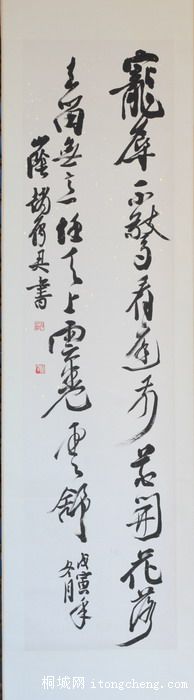 寵辱不驚看庭前花開花落
去留無意任天上雲卷雲舒
戊寅年
冬月
書
桐城网 itongcheng.com